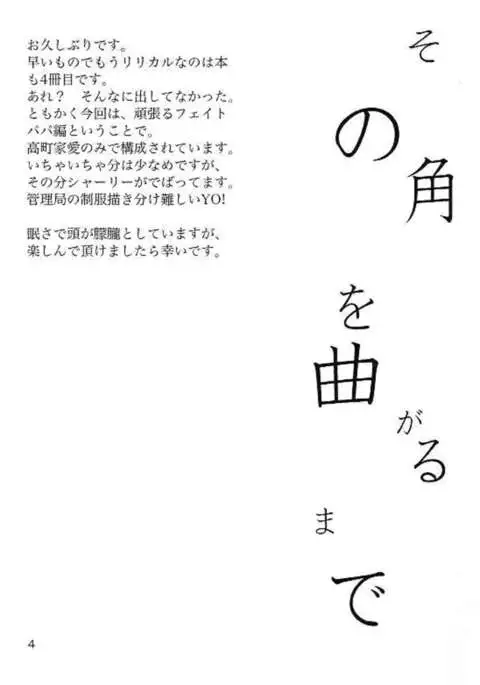 お久しぶりです。
早いものでもうリリカルなのは本
も4冊目です。
あれ？　そんなに出してなかった。
ともかく今回は、頑張るフェイト
パパ編ということで。
高町家愛のみで構成されています。
いちゃいちゃ分は少なめですが、
その分シャーリーがでばってます。
管理局の制服描き分け難しいYO!
眠さで頭が朦朧としていますが、
楽しんで頂けましたら幸いです。
その角を曲がるまで
4